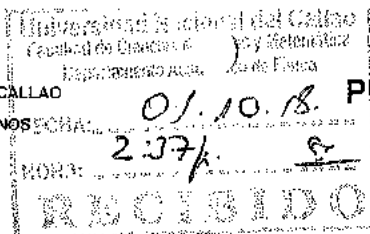 Universidad Nacional del Callao
Facultad de Ciencias y Matemática
Departamento de Física
CALLAO
P
NOS FECHA: 01.10.18.
HORA: 2:37p.
RECIBIDO